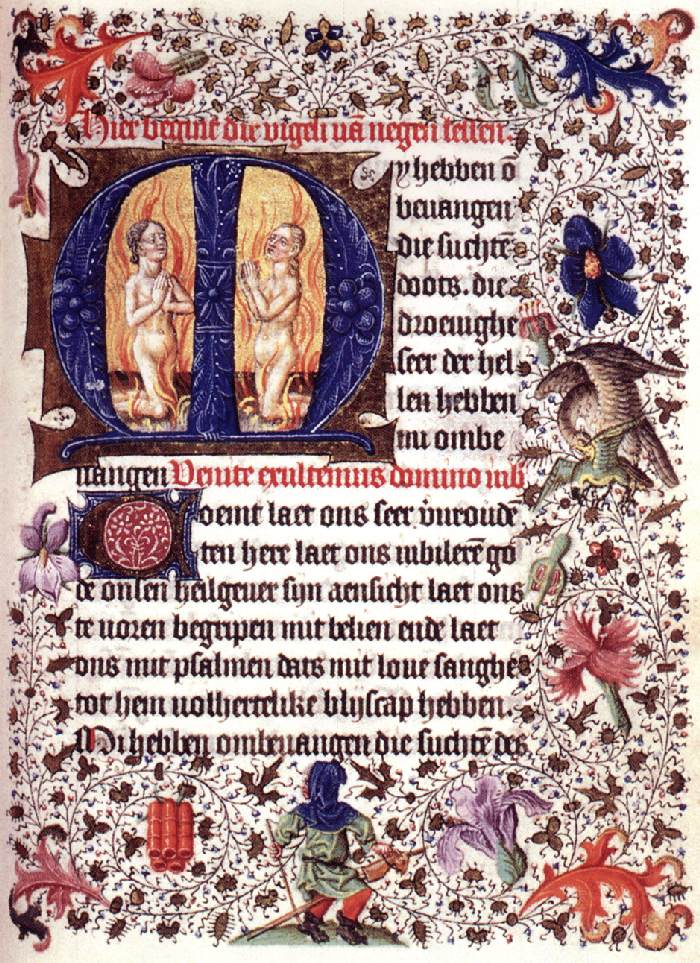 Hier begint die vigeli vā negen lessen.
My hebben ō
beuangen
die suchtē
doots. die
droeuighe
seer der hel
len hebben
mi ombe
uangen Venite exultemus domino iubi
Coemt laet ons seer v̄roude
ten here laet ons iubilerē go
de onsen heilgeuer sijn aensicht laet ons
te uoren begripen mit belien ende laet
ons mit psalmen dats mit loue sanghe
tot hem uolhertelike blijscap hebben.
Mi hebben ombeuangen die suchtē des